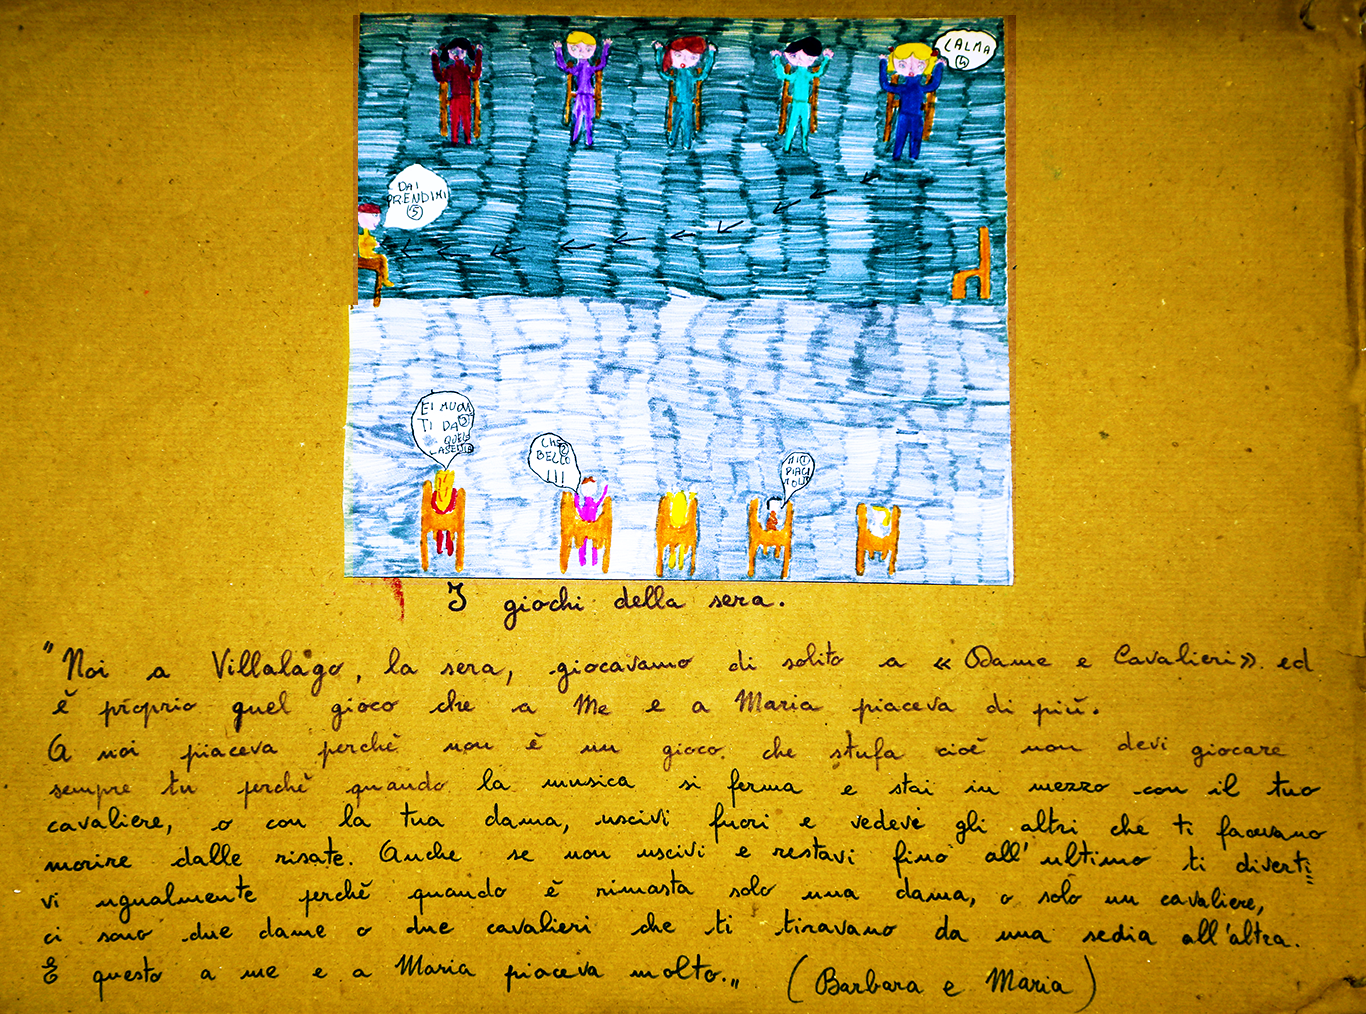 CALMA
4
DAI
PRENDIMI
5
EI MUOVI
TI DA 3
QUELLA SEDIA
CHE 2
BELLO
!!!
1
PIACI
I giochi della sera.
"Noi a Villalago, la sera, giocavamo di solito a « Dame e Cavalieri» ed
è proprio quel gioco che a Me e a Maria piaceva di più.
A noi piaceva perchè non è un gioco che stufa cioè non devi giocare
sempre tu perchè quando la musica si ferma e stai in mezzo con il tuo
cavaliere, o con la tua dama, uscivi fuori e vedevi gli altri che ti facevano
morire dalle risate. Anche se non uscivi e restavi fino all'ultimo ti diverti=
vi ugualmente perchè quando è rimasta solo una dama, o solo un cavaliere,
ci sono due dame o due cavalieri che ti tiravano da una sedia all'altra.
E questo a me e a Maria piaceva molto.„ (Barbara e Maria)